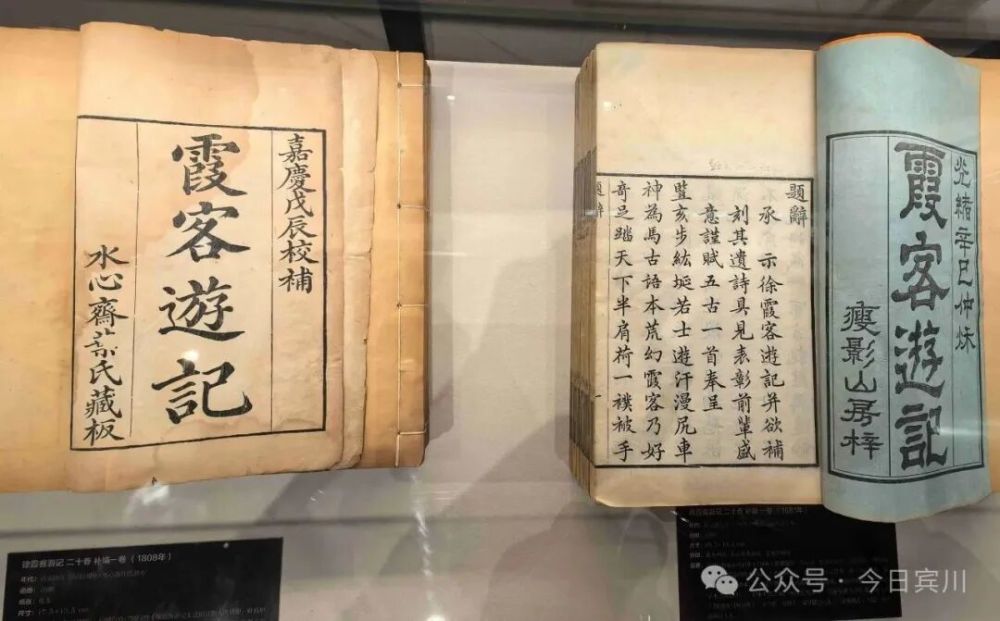 嘉慶戊辰校補
霞客遊記
水心齋葉氏藏板
光緒辛巳仲秌
霞客遊記
瘦影山房梓
題辭
承 示徐霞客遊記并欲補
刻其遺詩具見表彰前輩盛
意謹賦五古一首奉呈
豎亥步紘埏若士遊汗漫尻車
神為馬古語本荒幻霞客乃好
奇足踏天下半肩荷一襆被手
題辭
徐霞客游记 二十卷 补编一卷（1808年）
年代：
尺寸：
徐霞客游记 二十卷 补编一卷（1881年）
公众号·今日宾川